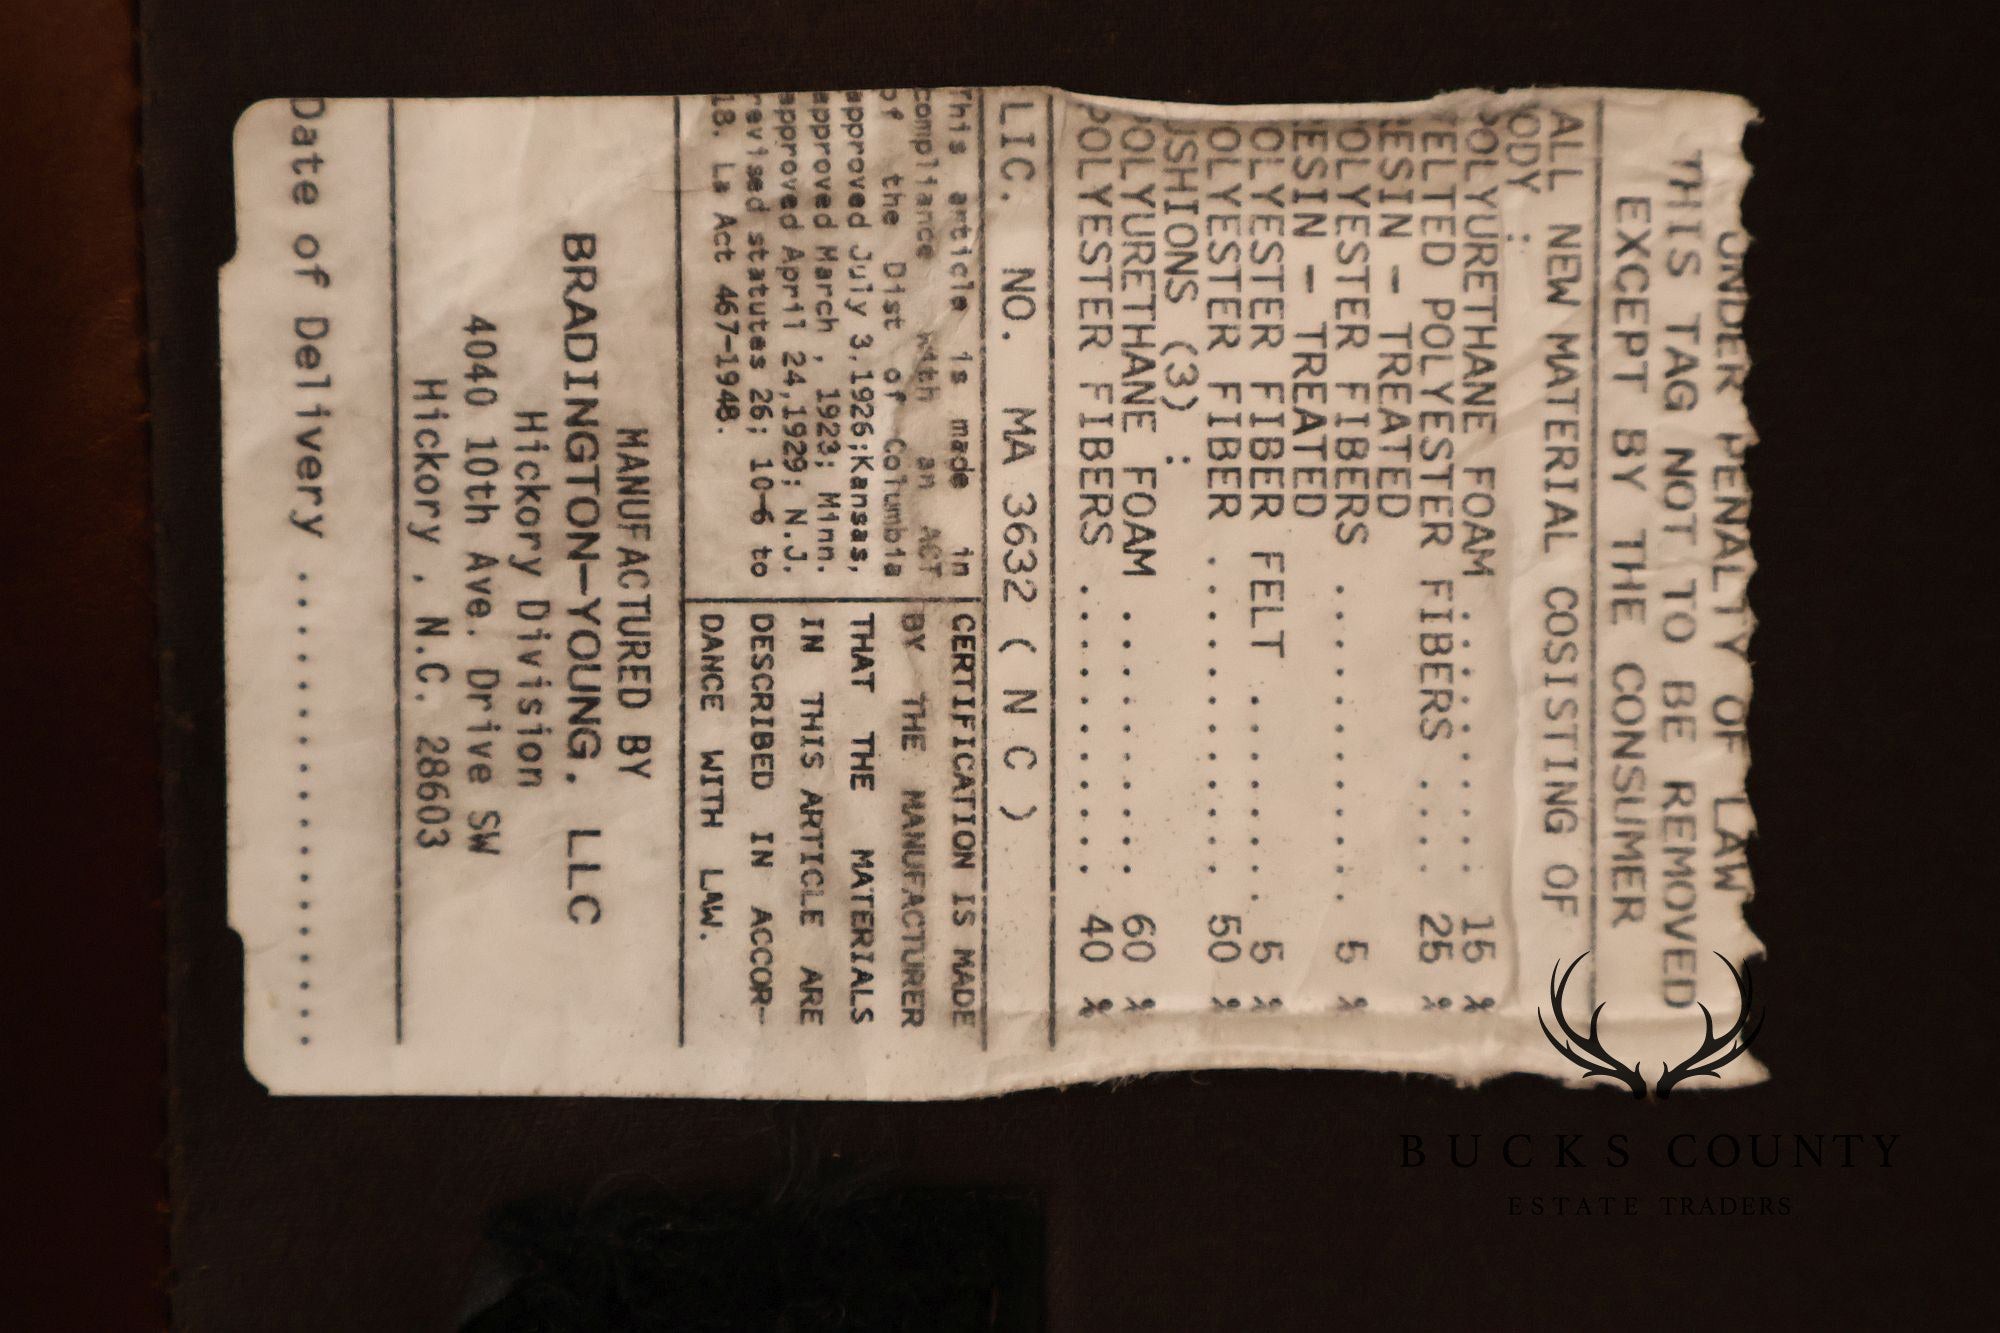 UNDER PENALTY OF LAW
THIS TAG NOT TO BE REMOVED
EXCEPT BY THE CONSUMER
ALL NEW MATERIAL COSISTING OF
ODY :
POLYURETHANE FOAM ............. 15 %
ELTED POLYESTER FIBERS .... 25 %
ESIN - TREATED
OLYESTER FIBERS ............ 5 %
ESIN - TREATED
OLYESTER FIBER FELT ........ 5 %
OLYESTER FIBER ............. 50 %
USHIONS (3) :
OLYURETHANE FOAM ........... 60 %
POLYESTER FIBERS ............ 40 %
LIC. NO. MA 3632 ( N C )
This article is made in
compliance with an ACT
of the Dist of Columbia
approved July 3,1926;Kansas,
approved March , 1923; Minn.
approved April 24,1929; N.J.
revised statutes 26; 10-6 to
18. La Act 467-1948.
CERTIFICATION IS MADE
BY THE MANUFACTURER
THAT THE MATERIALS
IN THIS ARTICLE ARE
DESCRIBED IN ACCOR-
DANCE WITH LAW.
MANUFACTURED BY
BRADINGTON-YOUNG, LLC
Hickory Division
4040 10th Ave. Drive SW
Hickory , N.C. 28603
Date of Delivery ....................
BUCKS COUNTY
ESTATE TRADERS